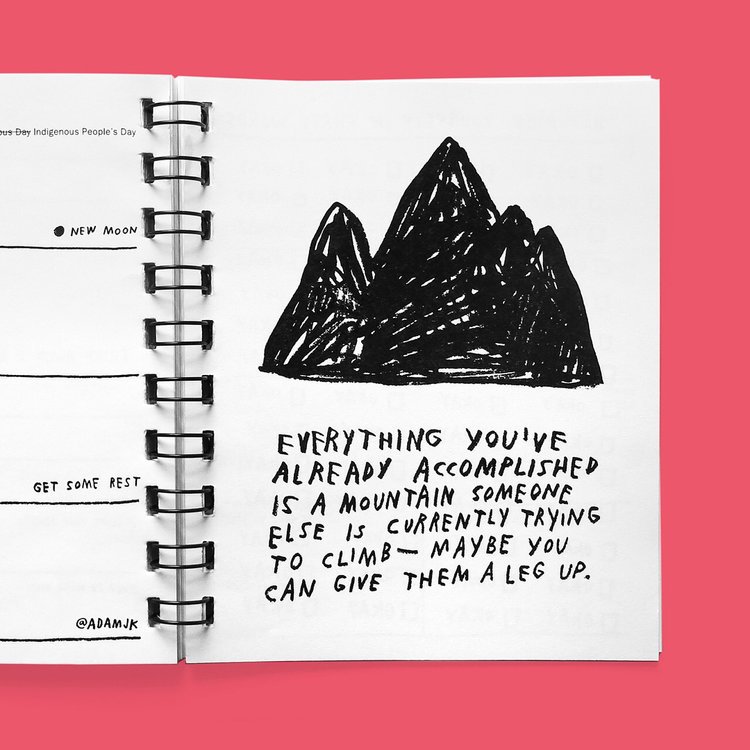 ous Day Indigenous People's Day
NEW MOON
GET SOME REST
@ADAMJK
EVERYTHING YOU'VE
ALREADY ACCOMPLISHED
IS A MOUNTAIN SOMEONE
ELSE IS CURRENTLY TRYING
TO CLIMB— MAYBE YOU
CAN GIVE THEM A LEG UP.